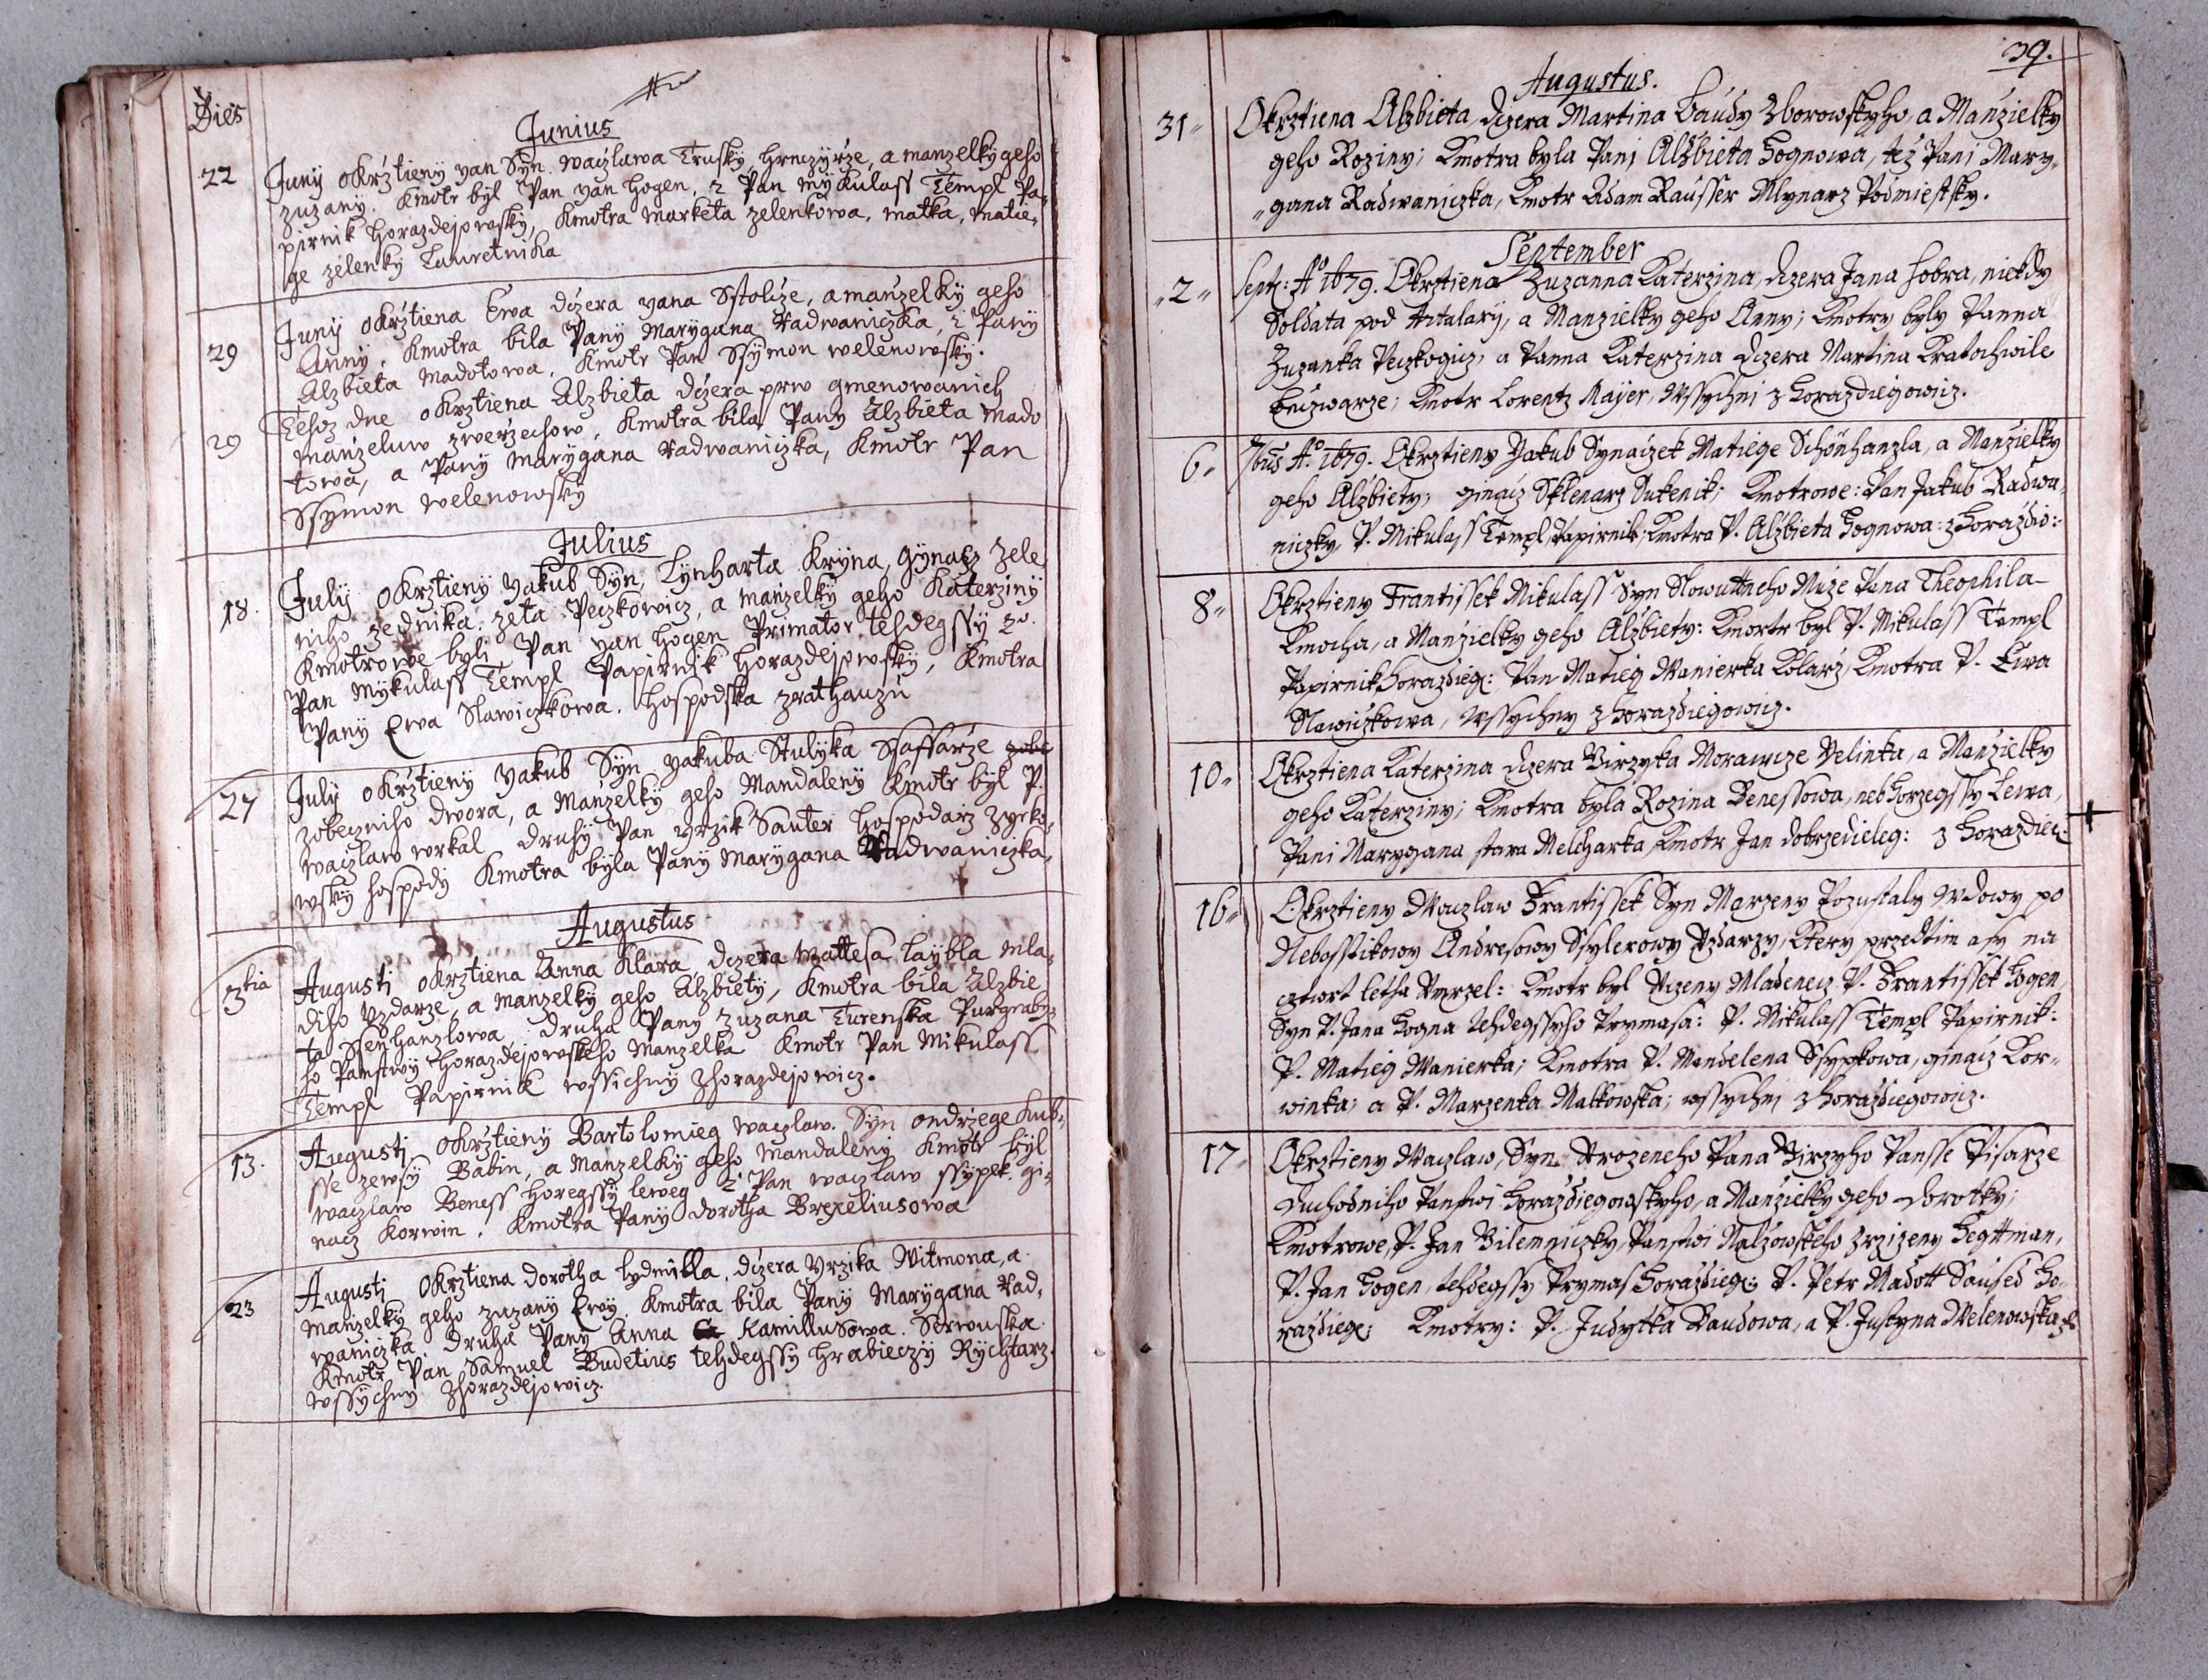 Dies
Junius
22
Juny okrztieny yan Syn waczlawa Trusky hrnczyrze, a manzelky geho
zuzany. Kmotr byl Pan yan hogen, 2 Pan mykulass Templ Pa-
pirnik horazdejowsky, Kmotra marketa zelenkowa, matka, matie-
ge zelenky Lauretnika
29
Juny okrztiena Ewa dczera yana Sstolcze, a manzelky geho
Anny, Kmotra bila Pany Marygana Radwaniczka, 2 Pany
Alzbieta Madotowa. Kmotr Pan Ssymon welenowsky.
29
Tehoz dne okrztiena Alzbieta dczera prw gmenowanich
manzeluw zwerzechow, Kmotra bila Pany Alzbieta Mado
towa, a Pany Marygana Radwaniczka, Kmotr Pan
Ssymon welenowsky
Julius
18.
July okrztieny yakub Syn, Lynharta Kryna, gynacz Zele
niho zednika, zeta Peczkowicz, a manzelky geho Katerziny
Kmotrowe byli Pan yan hogen Primator tehdegssy 20.
Pan Mykulass Templ Papirnik horazdejowsky, Kmotra
Pany Ewa Slawiczkowa. hospodska zrathauzu
27
July okrztieny yakub Syn yakuba Stulyka Ssaffarze
zobeczniho dwora, a Manzelky geho Mandaleny Kmotr byl P.
waczlaw wrkal druhy Pan yrzik Sauter hospodarz Zyrko-
wsky hospody Kmotra byla Pany Marygana Radwaniczka
Augustus
3tia
Augusti okrztiena Anna Klara dczera Mattesa Laybla mla-
diho Uzdarze, a manzelky geho Alzbiety, Kmotra bila Alzbie
ta ssenhanzlowa druha Pany Zuzana Turenska Purgraby-
ho Panstwy horazdejowskeho Manzelka Kmotr Pan Mikulass
Templ Papirnik wssichny Zhorazdejowicz.
13.
Augusti okrztieny Bartolomieg waczlaw. Syn ondrzege Kub-
sse zewsy Babin, a Manzelky geho Mandaleny Kmotr byl
waczlaw Beness horegssy leweg 2 Pan waczlaw ssypek. gi-
nacz Korwin. Kmotra Pany dorotha Brexeliusowa
23
Augusti Okrztiena dorotha lydmilla, dczera yrzika Witmona, a
manzelky geho zuzany Ewy. Kmotra bila Pany Marygana Rad-
waniczka. druha Pany Anna Kamillusowa.
Kmotr Pan Samuel Budetius tehdegssy hrabieczy Rychtarz.
wssychny Zhorazdejowicz.
39.
Augustus.
31
Okrztiena Alzbieta, dczera Martina Baudy Zborowskyho, a Manzielky
geho Roziny; Kmotra byla Pani Alzbieta Hognowa, tez Pani Mary-
gana Radwaniczka, Kmotr Adam Rausser Mlynarz Podmiestsky.
September
2
Sept: Ao 1679. Okrztiena Zuzanna Katerzina, dczera Jana hobra, niekdy
Soldata pod Artalary, a Manzielky geho Anny; Kmotry byly Panna
Zuzanka Peczkogicz, a Panna Katerzina dczera Martina Kratochwile
; Kmotr Lorentz Majer, Wssychni z Horazdiegowicz.
6
7bris Ao 1679. Okrztieny Jakub Synaczek Matiege Schönhanzla, a Manzielky
geho Alzbiety, ginacz Sklenarz Sukenik; Kmotrowe: Pan Jakub Radwa-
niczky, P. Mikulass Templ Papirnik, Kmotra P. Alzbieta Hognowa: z Horazdie:
8
Okrztieny Frantissek Mikulass Syn Slowutneho Muze Pana Theophila
Kmocha, a Manzielky geho Alzbiety: Kmotr byl P. Mikulass Templ
Papirnik Horazdieg: Pan Matieg Manierka Kolarz Kmotra P. Ewa
Slawiczkowa, Wssychny z Horazdiegowicz.
10
Okrztiena Katerzina dczera Girzyka Morawcze Velinka, a Manzielky
geho Katerziny; Kmotra byla Rozina Benessowa, neb Horzegssy Lewa,
Pani Marygana stara Melcharka, Kmotr Jan dobrzedieleg: z Horazdieg:
16
Okrztieny Waczlaw Frantissek, Syn Marzeny Pozustaly Wdowy po
Nebosstikowy Andresowy Ssylerowy Uzdarzy, Ktery przedtim asy na
cztwrt letha Umrzel: Kmotr byl Uczeny Mladenecz P. Frantissek Hogen,
Syn P. Jana Hogna Tehdegssyho Prymasa: P. Mikulass Templ Papirnik:
P. Matieg Manierka; Kmotra P. Mandelena Ssypkowa, ginacz Kor-
winka; a P. Marzenka Malkowska; wssychni z Horazdiegowicz.
17
Okrztieny Waczlaw, Syn Urozeneho Pana Girzyho Pansse Pisarze
duchodniho Panstwi Horazdiegowskyho, a Manzielky geho dorotky;
Kmotrowe, P. Jan Bilemniczky, Panstwi Nalzowskeho Zrzizeny Hegttman,
P. Jan Hogen, tehdegssy Prymas Horazdieg; P. Petr Madott Saused Ho-
razdieg; Kmotry: P. Judytka Baudowa, a P. Justyna Welenowska